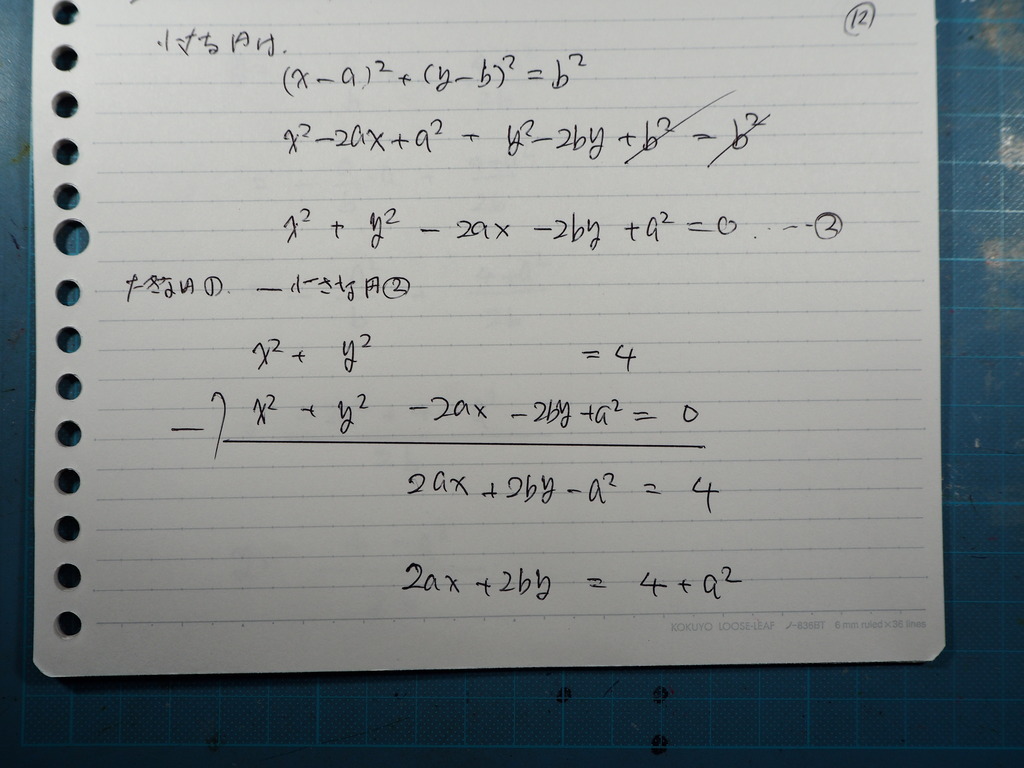 ⑫
小さな円は.
(x-a)² + (y-b)² = b²
x² - 2ax + a² + y² - 2by + b² = b²
x² + y² - 2ax - 2by + a² = 0 ... ②
大きな円①. — 小さな円②
x² + y² = 4
—) x² + y² - 2ax - 2by + a² = 0
2ax + 2by - a² = 4
2ax + 2by = 4 + a²
KOKUYO LOOSE-LEAF ノ-836BT 6 mm ruled×36 lines